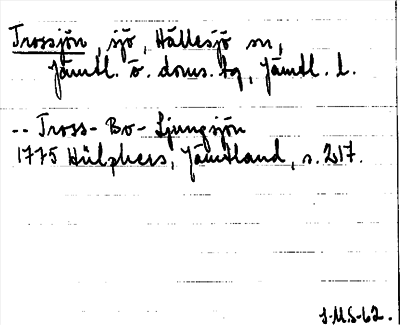 Trossjön, sjö, Hällesjö sn,
Jämtl. ö. doms. tg, Jämtl. l.
-- Tross- Bo- Ljungsjön
1775 Hülphers, Jämtland, s. 217.
J.M.S-62.